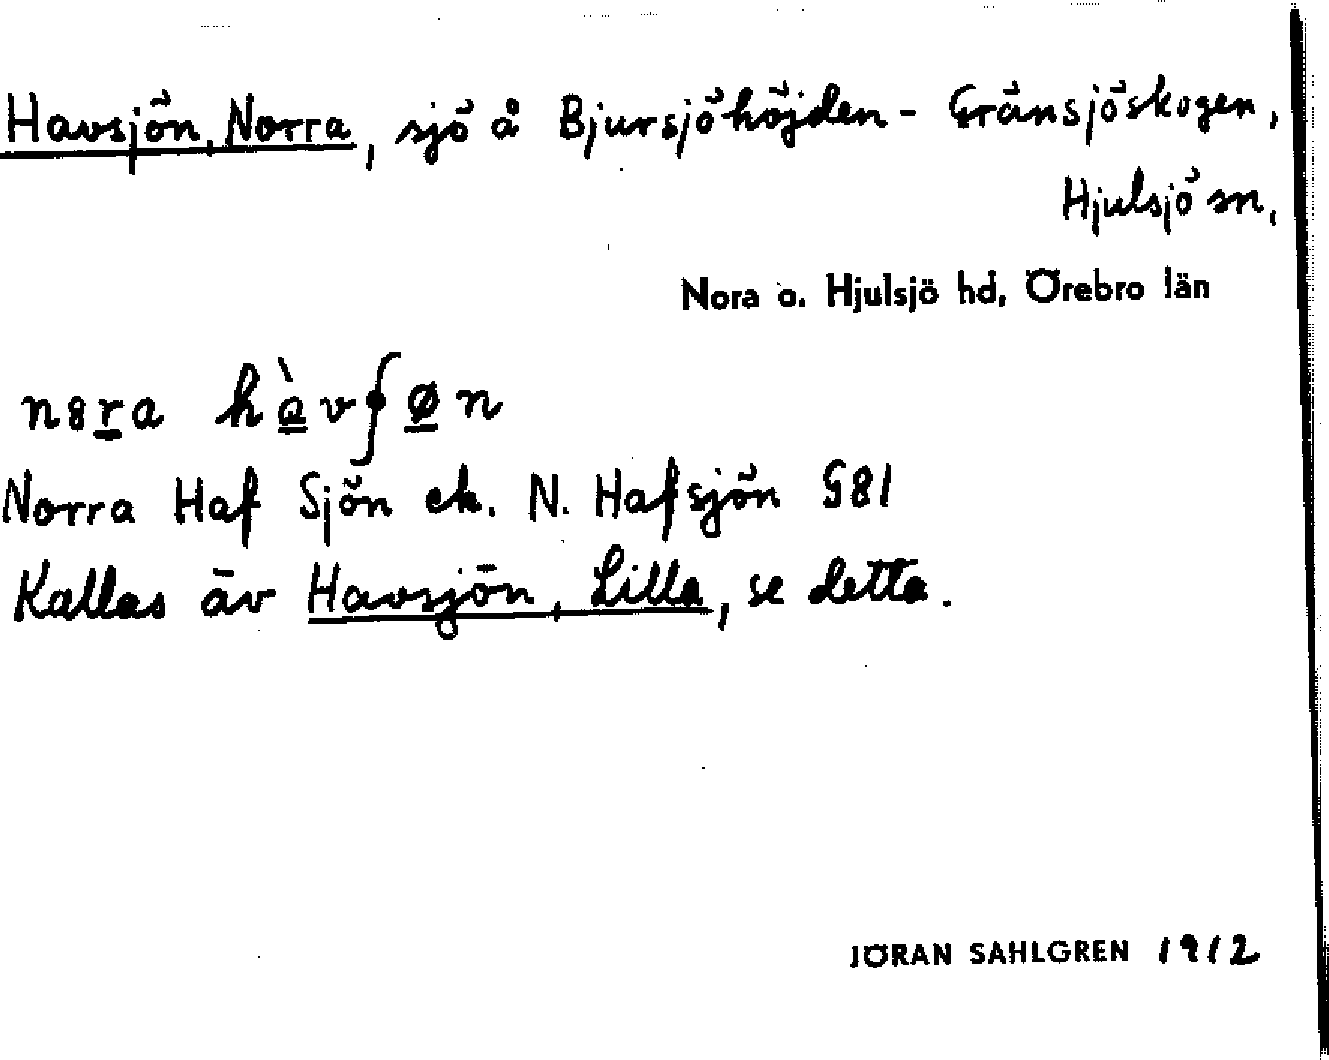 Havsjön, Norra, sjö å Bjursjöhöjden - Gränsjöskogen,
Hjulsjö sn,
Nora o. Hjulsjö hd, Örebro län
Norra Haf Sjön ek. N. Hafsjön G81
Kallas äv Havsjön, Lilla, se detta.
JÖRAN SAHLGREN 1912